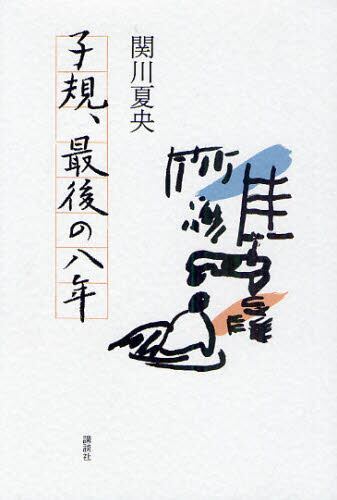 関川夏央
子規、最後の八年
講談社